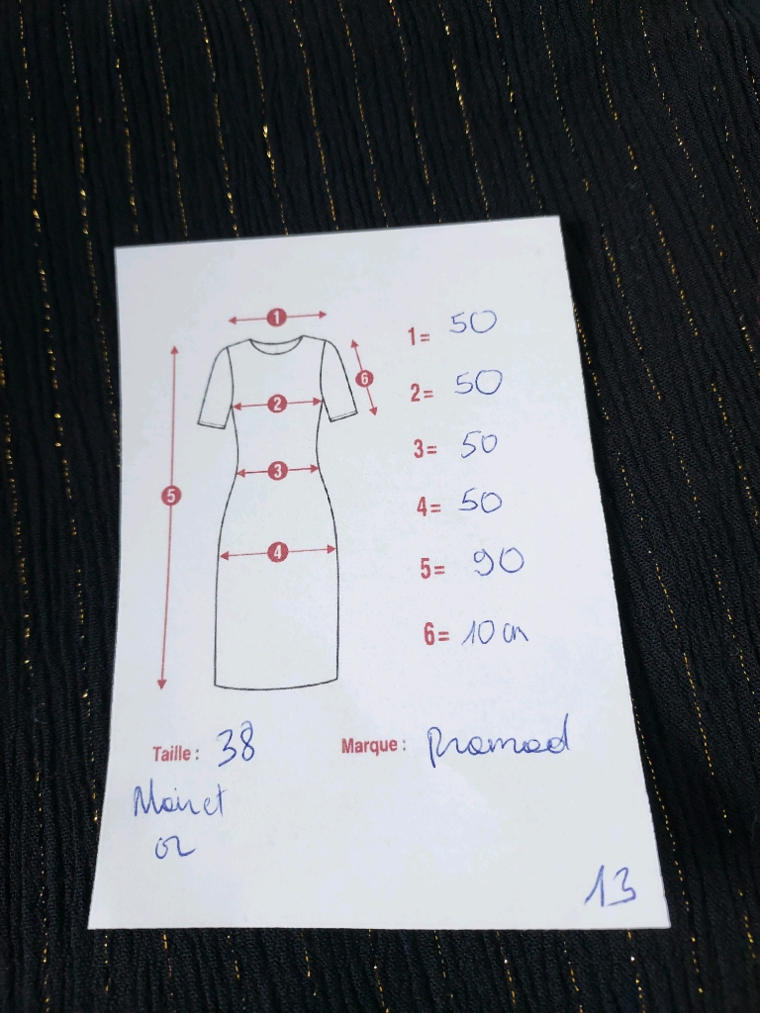 1
1= 50
6
2
2= 50
3
3= 50
5
4= 50
4
5= 90
6= 10 cm
Taille : 38
Marque : Promod
Noir et
or
13